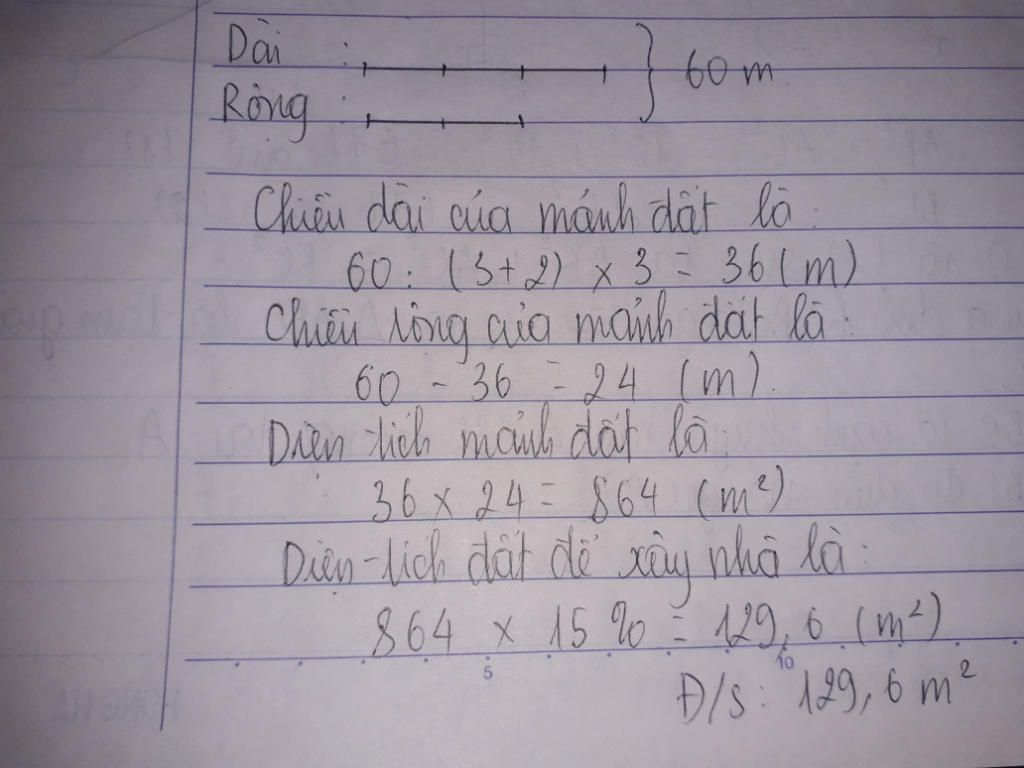 Dài :
Rộng :
} 60 m
Chiều dài của mảnh đất là :
60 : (3+2) × 3 = 36 (m)
Chiều rộng của mảnh đất là :
60 - 36 = 24 (m).
Diện tích mảnh đất là :
36 × 24 = 864 (m²)
Diện tích đất để xây nhà là :
864 × 15 % = 129,6 (m²)
5 10
Đ/S : 129,6 m²